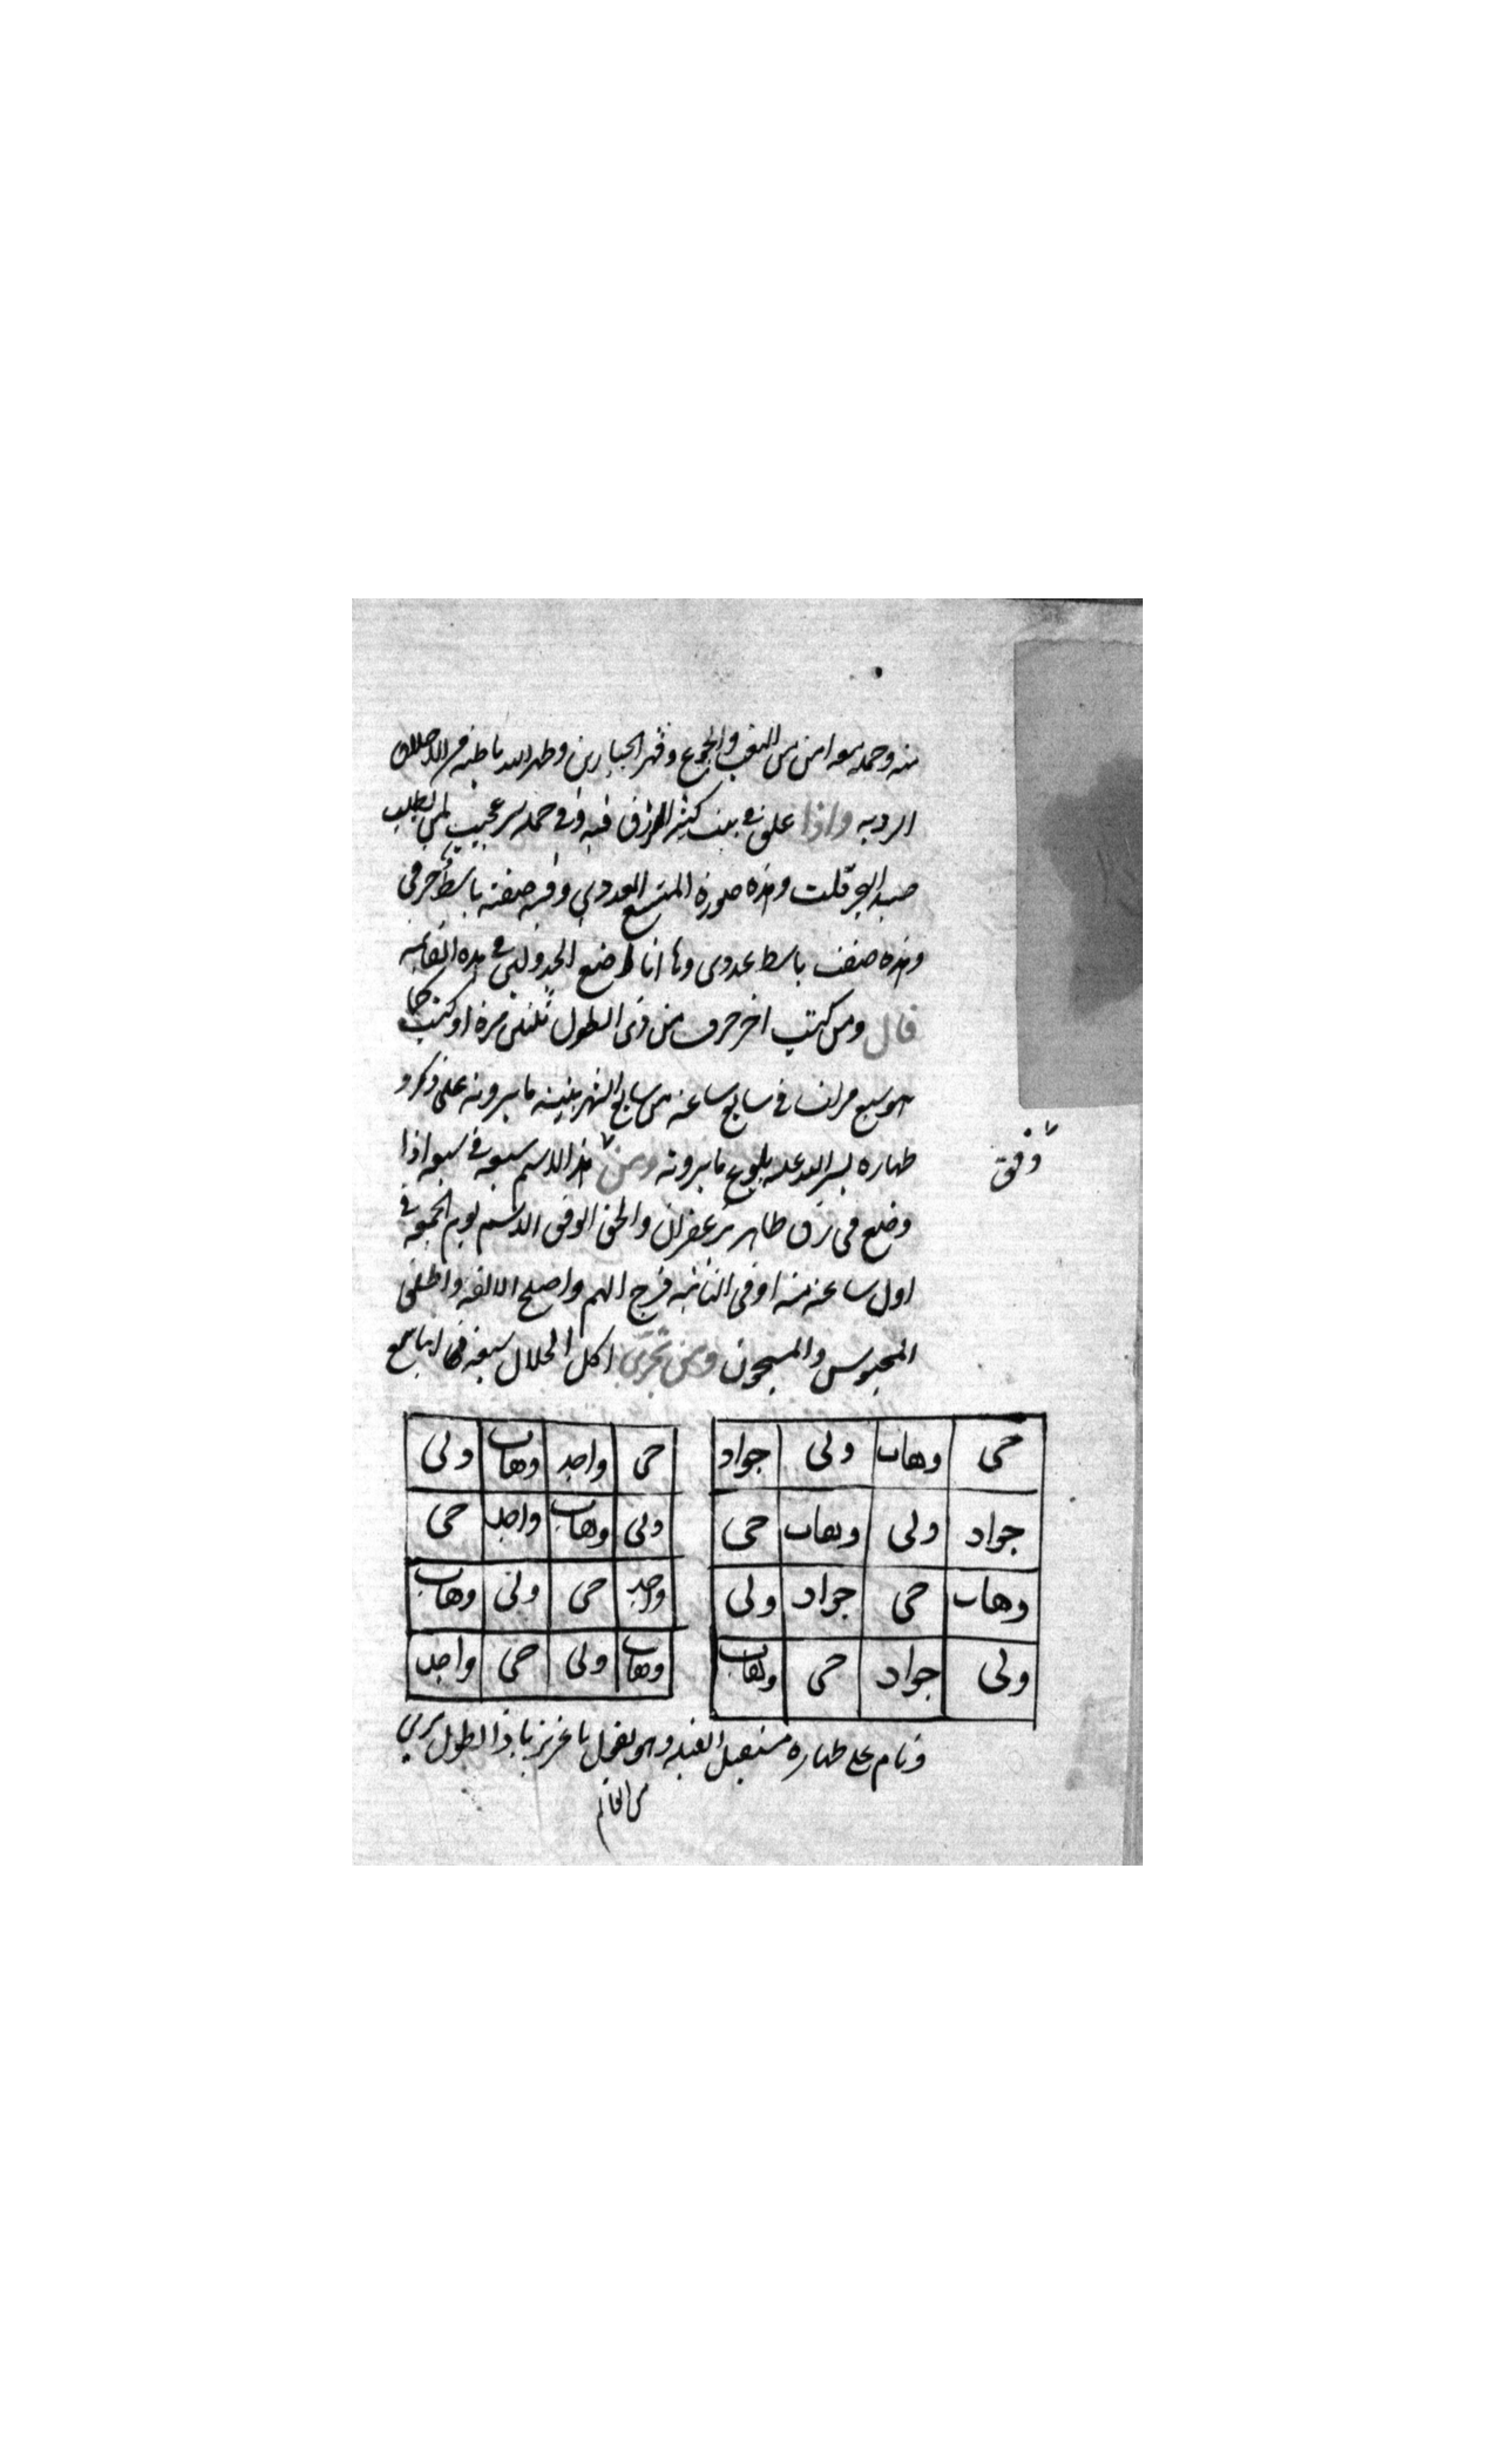 منه وحمله معه امن من التعب والجوع وقهر الجبارين وطهر الله باطنه من الاخلاق
الرديه واذا علق في بيت كثر الرزق فيه وفي حمله سر عجيب لمن يطلب
صيد البحر قلت وهذه صورة المتسع العددي وفيه صفته باسط حرفي
وهذه صفت باسط عددي وها انا اضع الجدولين في هذه القائمه
قال ومن كتب اخر حرف من ذي الطول ثلثين مرة او كتب
هو سبع مرات في سابع ساعة من سابع الشهر بنية ما يرونه على ذكر و
طهاره يسر الله عليه بلوغ ما يرونه ومن هذا الاسم سبعه في سبعه اذا
وفق
وضع في رق طاهر بزعفران والحق الوفق الاسم يوم الجمعه في
اول ساعة منه او في الثانيه فرج الهم واصلح الالفه واطلق
المحبوس والمسجون ومن تحرى اكل الحلال سبعة ايام
حى وهاب ولى جواد
جواد ولى وهاب حى
وهاب حى جواد ولى
ولى جواد حى وهاب
حى واجد وهاب ولى
ولى وهاب واجد حى
واجد حى ولى وهاب
وهاب ولى حى واجد
ونام على طهاره مستقبل القبله وهو يقول يا عزيز يا ذا الطول يرى